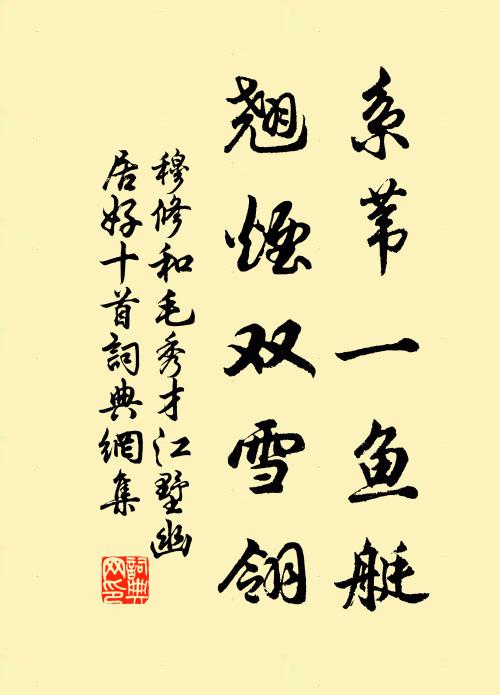 系苇一鱼艇
翘烟双雪翎
穆修和毛秀才江墅幽
居好十首詞典網集
詞典
网印